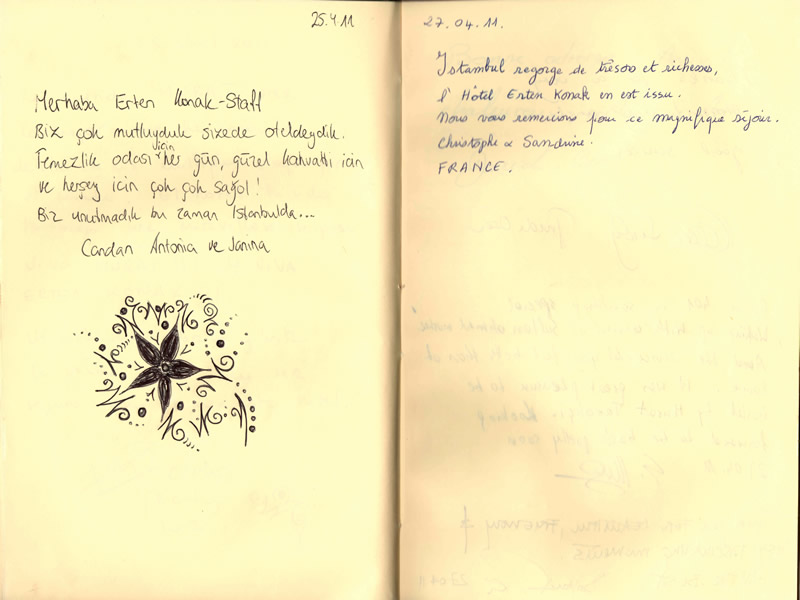 25.4.11
Merhaba Erten Konak-Staff
Biz çok mutluyduk sizede oteldeydik.
Temezlik odası için her gün, güzel kahvaltı için
ve herşey icin çok çok sağol!
Biz unutmadik bu zaman Istanbulda...
Candan Antonia ve Janina
27.04.11.
Istambul regorge de trésors et richesses,
l'Hôtel Erten Konak en est issu.
Nous vous remercions pour ce magnifique séjour.
Christophe & Sandrine.
FRANCE.